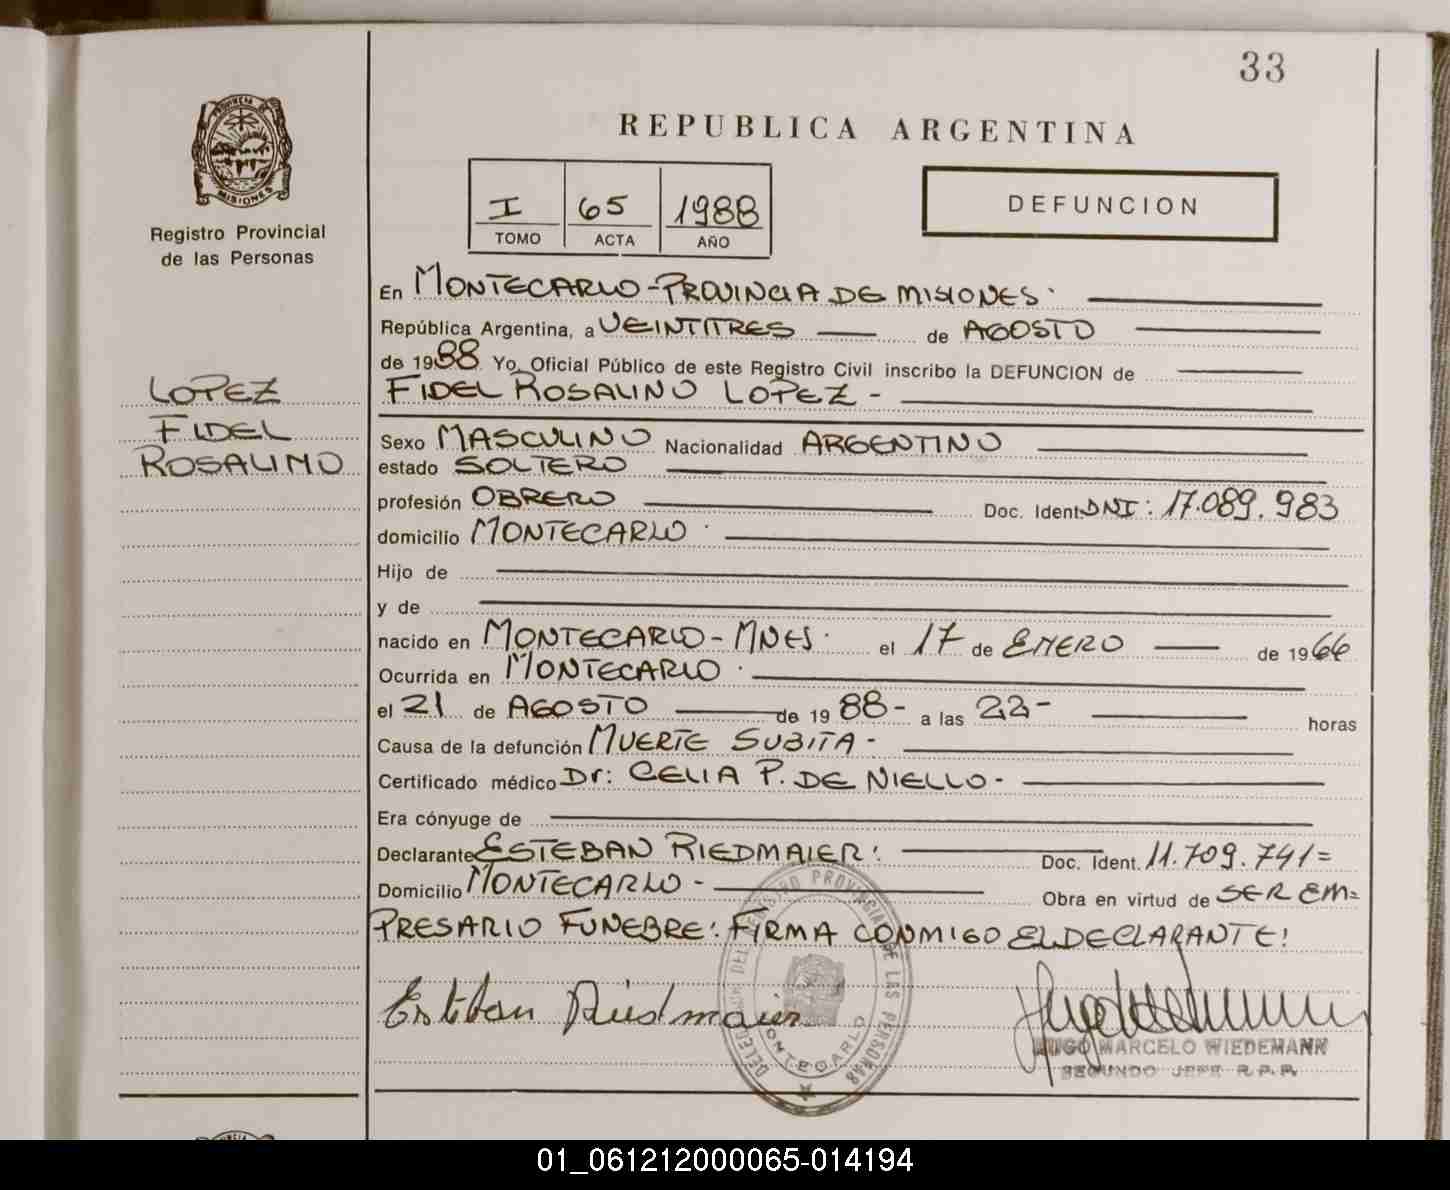 33
REPUBLICA ARGENTINA
PROVINCIA DE
MISIONES
Registro Provincial
de las Personas
I 65 1988
TOMO ACTA AÑO
DEFUNCION
LOPEZ
FIDEL
ROSALINO
En MONTECARLO-PROVINCIA DE MISIONES.
República Argentina, a VEINTITRES de AGOSTO
de 1988 Yo, Oficial Público de este Registro Civil inscribo la DEFUNCION de
FIDEL ROSALINO LOPEZ-
Sexo MASCULINO Nacionalidad ARGENTINO
estado SOLTERO
profesión OBRERO Doc. Ident. DNI: 17.089.983
domicilio MONTECARLO.
Hijo de
y de
nacido en MONTECARLO-MNES. el 17 de ENERO de 1966
Ocurrida en MONTECARLO.
el 21 de AGOSTO de 1988- a las 22- horas
Causa de la defunción MUERTE SUBITA-
Certificado médico Dr: CELIA P. DE NIELLO-
Era cónyuge de
Declarante ESTEBAN RIEDMAIER: Doc. Ident. 11.709.741=
Domicilio MONTECARLO- Obra en virtud de SER EM=
PRESARIO FUNEBRE: FIRMA CONMIGO EL DECLARANTE!
Esteban Riedmaier
HUGO MARCELO WIEDEMANN
SEGUNDO JEFE R.P.P.
PROVINCIAL DE LAS PERSONAS
MONTECARLO
01_061212000065-014194